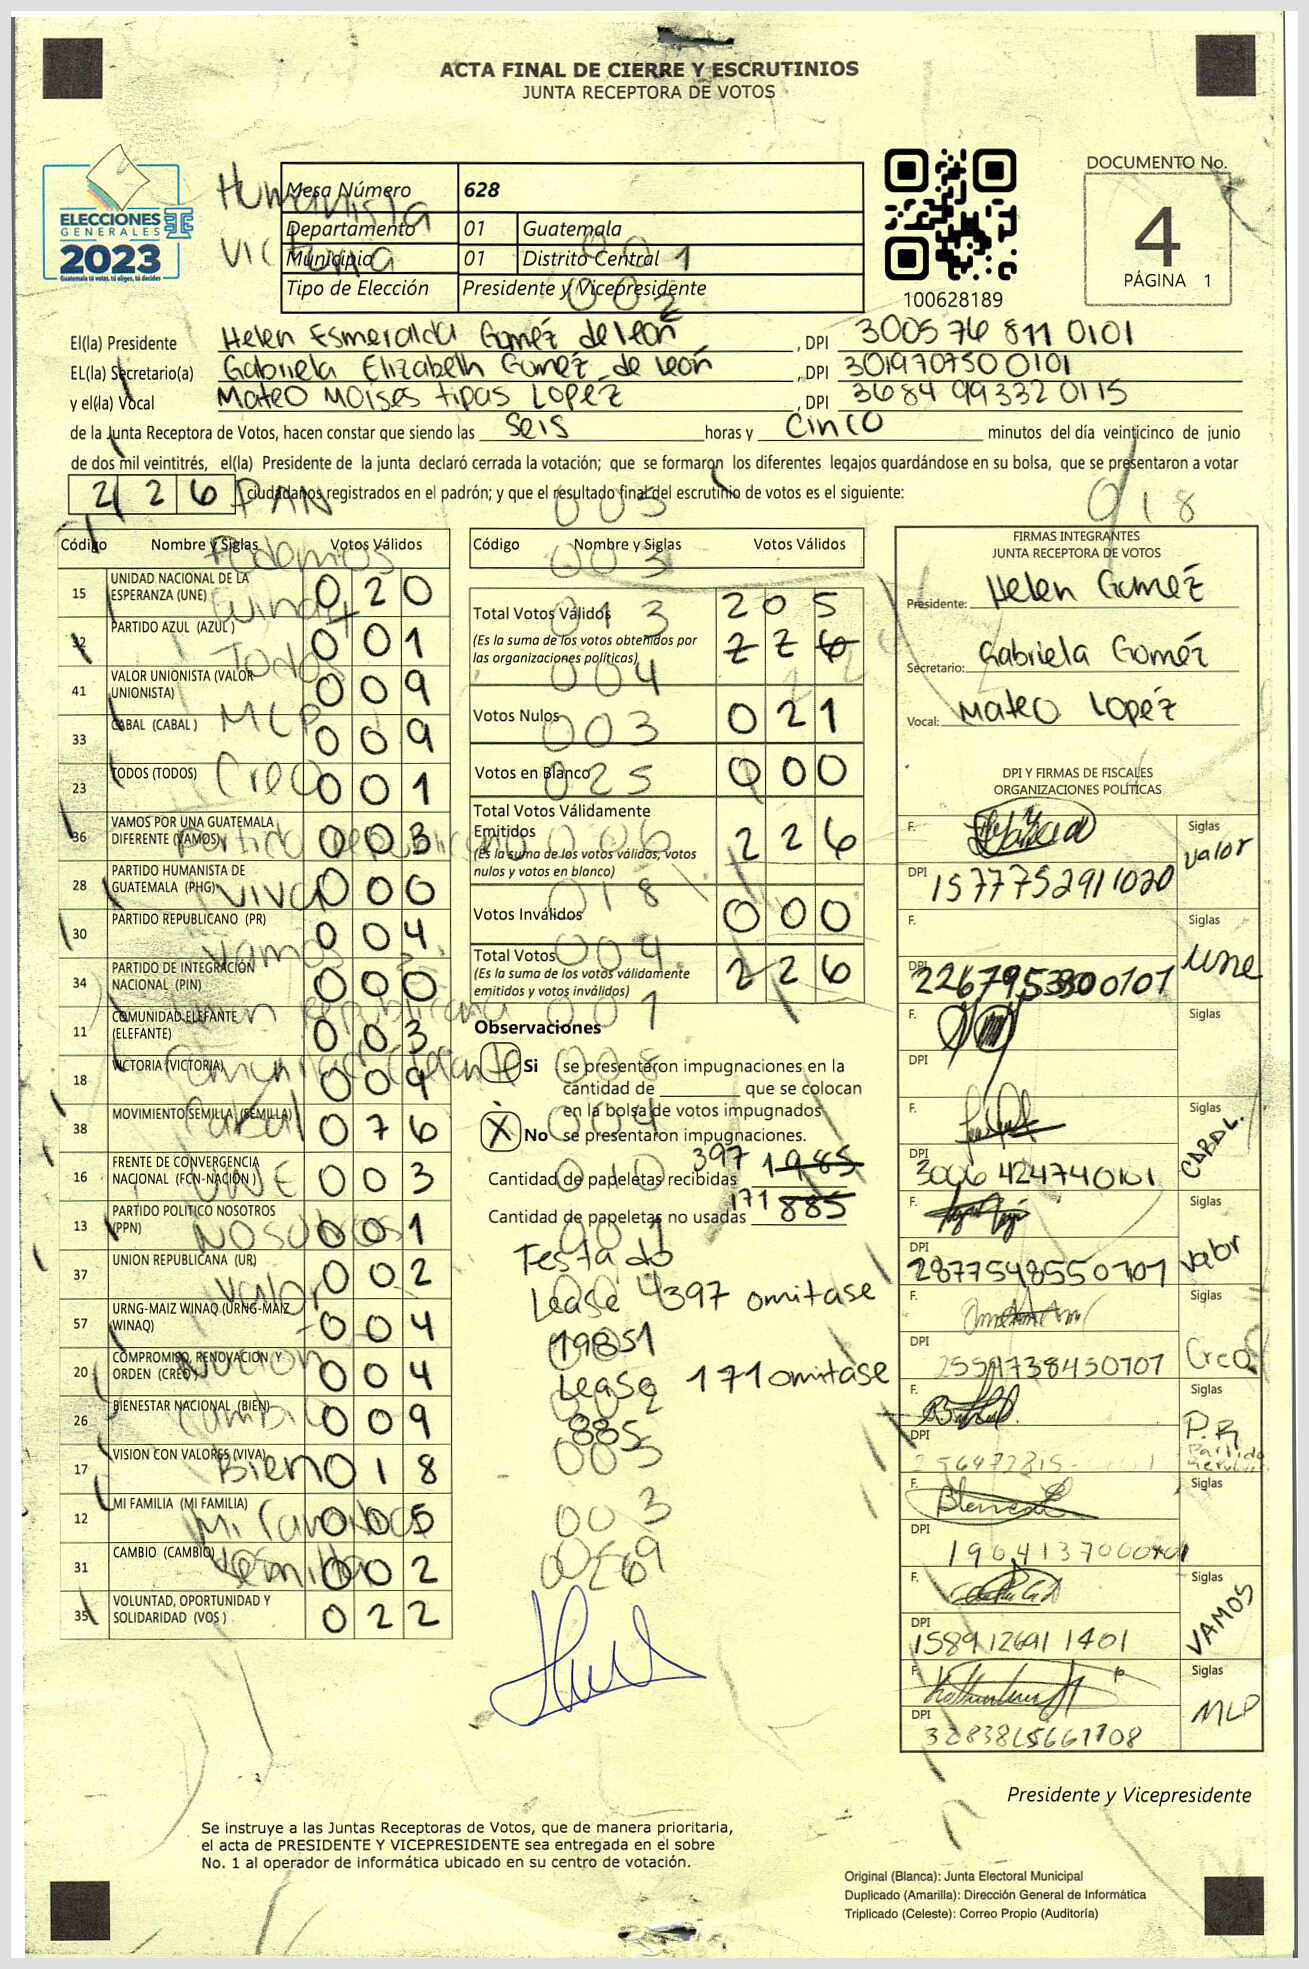 ACTA FINAL DE CIERRE Y ESCRUTINIOS
JUNTA RECEPTORA DE VOTOS
ELECCIONES
GENERALES
2023
Guatemala tú votas, tú eliges, tú decides
Humanista
Victoria
001
002
Mesa Número 628
Departamento 01 Guatemala
Municipio 01 Distrito Central
Tipo de Elección Presidente y Vicepresidente
100628189
DOCUMENTO No.
4
PÁGINA 1
El(la) Presidente Helen Esmeralda Goméz de león , DPI 300576 811 0101
EL(la) Secretario(a) Gabriela Elizabeth Goméz de león , DPI 3019707500101
y el(la) Vocal Mateo Moises tipas Lopéz , DPI 3684 99332 0115
de la Junta Receptora de Votos, hacen constar que siendo las seis horas y cinco minutos del día veinticinco de junio
de dos mil veintitrés, el(la) Presidente de la junta declaró cerrada la votación; que se formaron los diferentes legajos guardándose en su bolsa, que se presentaron a votar
226 ciudadanos registrados en el padrón; y que el resultado final del escrutinio de votos es el siguiente:
PAN
005
018
Código Nombre y Siglas Votos Válidos
15 UNIDAD NACIONAL DE LA ESPERANZA (UNE) 020
32 PARTIDO AZUL (AZUL ) 001
41 VALOR UNIONISTA (VALOR UNIONISTA) 009
33 CABAL (CABAL ) 009
23 TODOS (TODOS) 001
36 VAMOS POR UNA GUATEMALA DIFERENTE (VAMOS) 003
28 PARTIDO HUMANISTA DE GUATEMALA (PHG) 000
30 PARTIDO REPUBLICANO (PR) 004
34 PARTIDO DE INTEGRACIÓN NACIONAL (PIN) 000
11 COMUNIDAD ELEFANTE (ELEFANTE) 003
18 VICTORIA (VICTORIA) 009
38 MOVIMIENTO SEMILLA (SEMILLA) 076
16 FRENTE DE CONVERGENCIA NACIONAL (FCN-NACIÓN ) 003
13 PARTIDO POLITICO NOSOTROS (PPN) 001
37 UNION REPUBLICANA (UR) 002
57 URNG-MAIZ WINAQ (URNG-MAIZ WINAQ) 004
20 COMPROMISO, RENOVACION Y ORDEN (CREO ) 004
26 BIENESTAR NACIONAL (BIEN) 009
17 VISION CON VALORES (VIVA) 018
12 MI FAMILIA (MI FAMILIA) 005
31 CAMBIO (CAMBIO) 002
35 VOLUNTAD, OPORTUNIDAD Y SOLIDARIDAD (VOS ) 022
Podemos
Todos
MLP
Creo
Partido republicano
Viva
Vamos
Cabal
UNE
Nosotros
Valor
Nacion
Cambio
Bien
Mi Familia
Semilla
003
013
004
003
025
006
018
004
001
008
004
010
Código Nombre y Siglas Votos Válidos
Total Votos Válidos 205
(Es la suma de los votos obtenidos por
las organizaciones políticas) 226
Votos Nulos 021
Votos en Blanco 000
Total Votos Válidamente
Emitidos 226
(Es la suma de los votos válidos, votos
nulos y votos en blanco)
Votos Inválidos 000
Total Votos 226
(Es la suma de los votos válidamente
emitidos y votos inválidos)
Observaciones
Si se presentaron impugnaciones en la
cantidad de ________ que se colocan
en la bolsa de votos impugnados
X No se presentaron impugnaciones.
Cantidad de papeletas recibidas 397 1985
Cantidad de papeletas no usadas 171 885
Testado
Lease 397 omitase
1985
Lease 171 omitase
885
003
003
FIRMAS INTEGRANTES
JUNTA RECEPTORA DE VOTOS
Presidente: Helen Goméz
Secretario: Gabriela Goméz
Vocal: Mateo Lopéz
DPI Y FIRMAS DE FISCALES
ORGANIZACIONES POLÍTICAS
F. Siglas valor
DPI 1577752911020
F. Siglas une
DPI
F. Siglas
DPI
F. Siglas CABAL.
DPI 3006424740101
F. Siglas Valor
DPI 2877548550101
F. Siglas Creo
DPI
F. Siglas P.R
DPI
F. Siglas
DPI
F. Siglas VAMOS
DPI 1589126911401
F. Siglas MLP
DPI
Presidente y Vicepresidente
Se instruye a las Juntas Receptoras de Votos, que de manera prioritaria,
el acta de PRESIDENTE Y VICEPRESIDENTE sea entregada en el sobre
No. 1 al operador de informática ubicado en su centro de votación.
Original (Blanca): Junta Electoral Municipal
Duplicado (Amarilla): Dirección General de Informática
Triplicado (Celeste): Correo Propio (Auditoría)